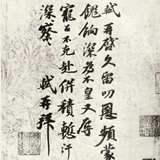 軾再啓久留叨恩頻蒙
餽餉深為不皇又辱
寵召不克赴併積慙汗
深察 軾再拜